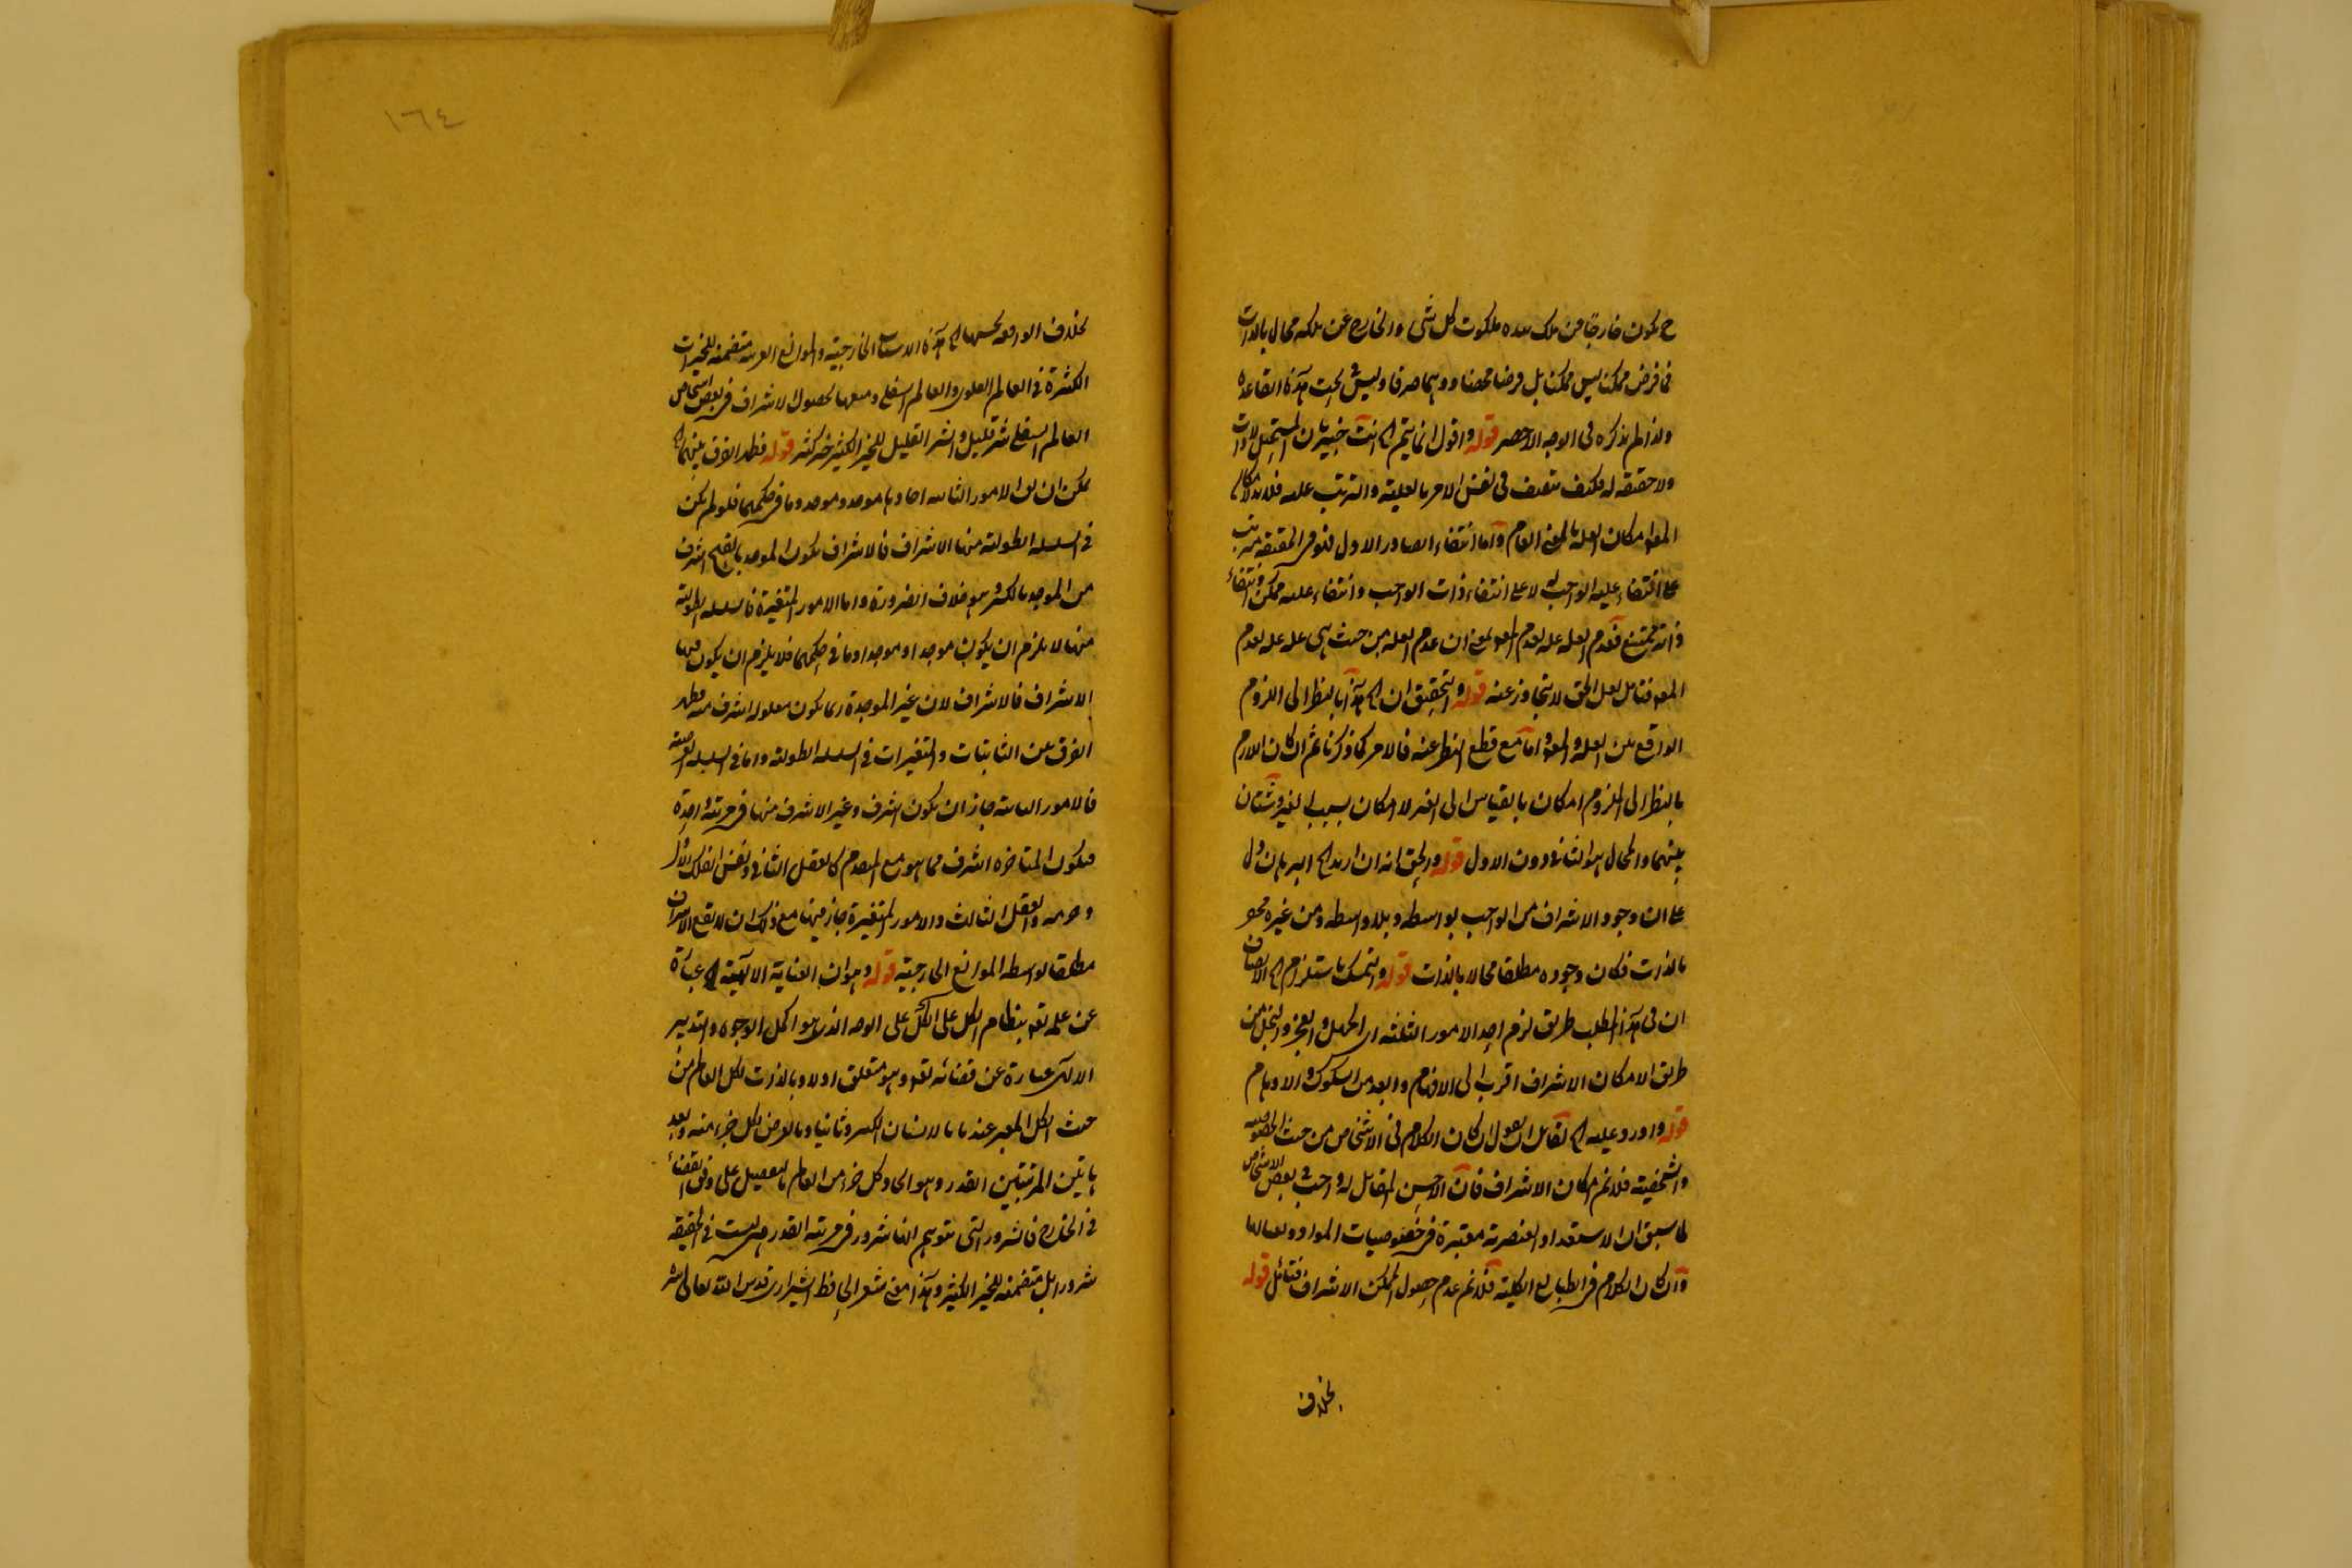 ح يكون خارجا من ملك بيده ملكوت كل شئ والخارج عن ملكه محال بالذات
فما فرض ممكنا ليس ممكنا بل فرضا محضا ووهما صرفا وليس تحت هذه القاعدة
ولذا لم يذكره فى الوجه الاخصر قوله واقول انما يتم الخ انت خبير بان المستحيل لا ذات
ولا حقيقة له فكيف يتصف فى نفس الامر بالعلية والترتب عليه فلا بد لامكان
المعلول امكان العلة بالمعنى العام واما انتفاء الصادر الاول فهو فى الحقيقة مترتب
على انتفاء علية الواجب له لا على انتفاء ذات الواجب وانتفاء عليته ممكن وانتفاء
ذاته ممتنع فعدم العلة علة لعدم المعلول بمعنى ان عدم العلة من حيث هى علة علة لعدم
المعلول فتامل لعل الحق لا يتجاوز عنه قوله والتحقيق ان الخ هذا بالنظر الى اللزوم
الواقع بين العلة والمعلول واما مع قطع النظر عنه فالامر كما ذكرنا ثم ان امكان اللازم
بالنظر الى الملزوم امكان بالقياس الى الغير لا امكان بسبب الغير وشتان
بينهما والمحال هو الثانى دون الاول قوله والحق انه ان اريد الخ البرهان دل
على ان وجود الاشراف من الواجب بواسطة وبلا واسطة ومن غيره محال
بالذات فكان وجوده مطلقا محالا بالذات قوله والتمسك باستلزام الخ الانصاف
ان فى هذا المطلب طريق لزوم احد الامور الثلثة اى الجهل والعجز والبخل من
طريق الامكان الاشراف اقرب الى الافهام وابعد من الشكوك والاوهام
قوله واورد عليه الخ لقائل ان يقول ان كان الكلام فى الاشخاص من حيث الخصوصية
والشخصية فلا نم امكان الاشراف فان الاحسن المقابل له واجب فى بعض الاشخاص
لما سبق ان الاستعداد العنصرية معتبرة فى خصوصيات المواد
وان كان الكلام فى الطبايع الكلية فلا نم عدم حصول الممكن الاشراف فتامل قوله
بخلاف
١٦٤
بخلاف الواقعة الخ هذه الاسباب الخارجية والموانع متضمنة للخيرات
الكثيرة فى العالم العلوى والعالم السفلى ومنعها لحصول الاشراف فى بعض اشخاص
العالم السفلى شر قليل والشر القليل للخير الكثير خير كثير قوله فظهر الفرق بينهما الخ
يمكن ان الامور الثابتة احادها موجد وموجد وما فى حكمهما فلو لم يكن
فى السلسلة الطولية منها الاشراف فالاشراف يكون الموجد بالفتح اشرف
من الموجد بالكسر وهو خلاف الضرورة واما الامور المتغيرة فالسلسلة الطولية
منها لا يلزم ان يكون موجدا وموجدا وما فى حكمهما فلا يلزم ان يكون فيها
الاشراف فالاشراف لان غير الموجدة ربما يكون معلوله اشرف منه فظهر
الفرق بين الثابتات والمتغيرات فى السلسلة الطولية واما فى السلسلة العرضية
فالامور الثابتة جاز ان يكون اشرف وغير الاشرف منها فى مرتبة واحدة
فيكون المتاخرة اشرف مما هو مع المتقدم كالعقل الثانى ونفس الفلك الاول
وجرمه والعقل الثالث والامور المتغيرة جاز فيها مع ذلك ان لا يقع الاشراف
مطلقا بواسطة الموانع الخارجية قوله وهو ان العناية الالهية الخ عبارة
عن علمه تعالى بنظام الكل على الكل على الوجه الذى هو اكمل الوجوه والتدبير
الالهى عبارة عن قضائه تعالى وهو متعلق اولا وبالذات بكل العالم من
حيث الكل المعبر عنه بالانسان الكبير وثانيا وبالعرض بكل جزء منه وبعد
هاتين المرتبتين القدر وهو ايجاد كل جزء من العالم بالتفصيل على وفق القضاء
فى الخارج فالشرور التى يتوهم انها شرور فى مرتبة القدر ليست فى الحقيقة
شرورا بل متضمنة للخير الكثير وهذا معنى شعر الحافظ الشيرازى قدس الله تعالى سره